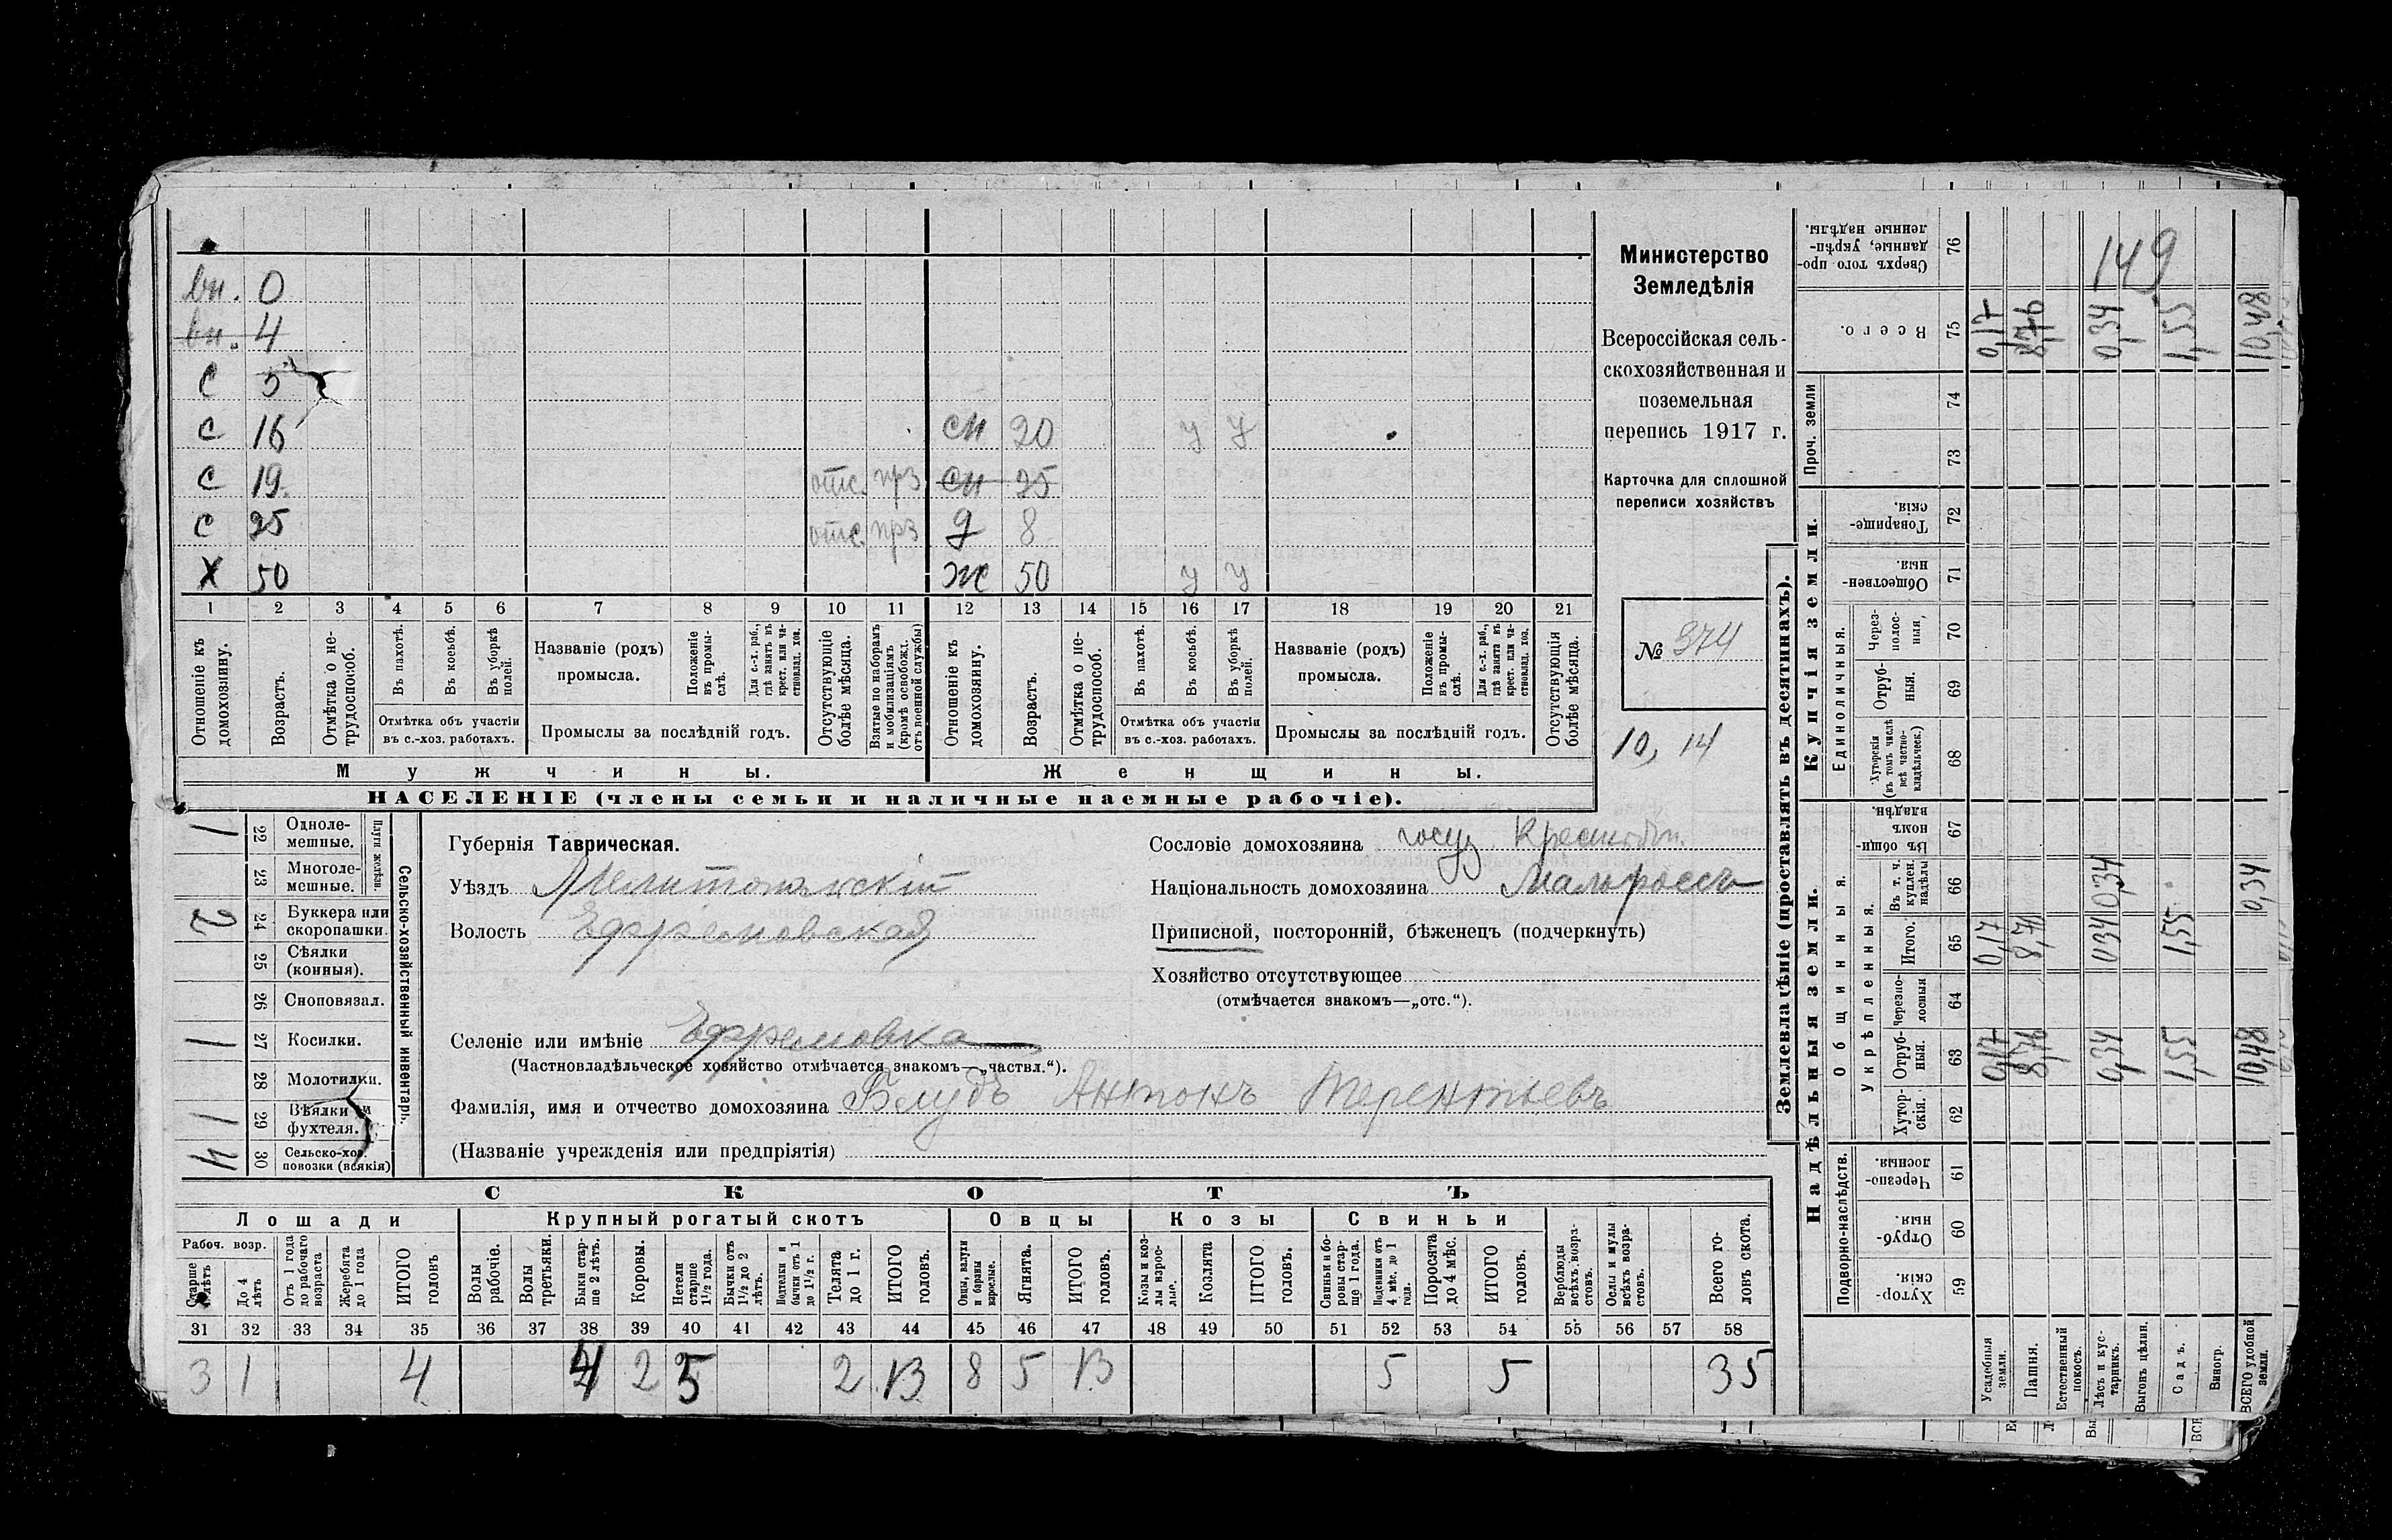 вн. 0
вн. 4
С 5
С 16 сн 20 у у
С 19 отс. прз сн 25
С 25 отс. прз д 8
Х 50 ж 50 у у
1 2 3 4 5 6 7 8 9 10 11 12 13 14 15 16 17 18 19 20 21
Отношеніе къ домохозяину.
Возрастъ.
Отмѣтка о нетрудоспособ.
Въ пахотѣ.
Въ косьбѣ.
Въ уборкѣ полей.
Отмѣтка объ участіи
въ с.-хоз. работахъ.
Названіе (родъ)
промысла.
Положеніе въ промыслѣ.
Для с.-х. раб., гдѣ занятъ въ крест. или частновлад. хоз.
Промыслы за послѣдній годъ.
Отсутствующіе болѣе мѣсяца.
Взятые по наборамъ и мобилизаціямъ (кромѣ освобожд. отъ военной службы)
Отношеніе къ домохозяину.
Возрастъ.
Отмѣтка о нетрудоспособ.
Въ пахотѣ.
Въ косьбѣ.
Въ уборкѣ полей.
Отмѣтка объ участіи
въ с.-хоз. работахъ.
Названіе (родъ)
промысла.
Положеніе въ промыслѣ.
Для с.-х. раб., гдѣ занята въ крест. или частновлад. хоз.
Промыслы за послѣдній годъ.
Отсутствующія болѣе мѣсяца.
Мужчины. Женщины.
НАСЕЛЕНІЕ (члены семьи и наличные наемные рабочіе).
Министерство
Земледѣлія
Всероссійская сель-
скохозяйственная и
поземельная
перепись 1917 г.
Карточка для сплошной
переписи хозяйствъ
№ 374
10, 14
Сельско-хозяйственный инвентарь.
Плуги желѣзн.
1 22 Одноле-
мешные.
23 Многоле-
мешные.
2 24 Буккера или
скоропашки.
25 Сѣялки
(конныя).
26 Сноповязал.
1 27 Косилки.
28 Молотилки.
1 29 Вѣялки и
фухтеля.
4 30 Сельско-хоз.
повозки (всякія)
Губернія Таврическая.
Уѣздъ Мелитопольскій
Волость Ефремовская
Селеніе или имѣніе Ефремовка
(Частновладѣльческое хозяйство отмѣчается знакомъ—„частвл.“).
Фамилія, имя и отчество домохозяина Блудъ Антонъ Терентьевъ
(Названіе учрежденія или предпріятія)
Сословіе домохозяина госуд Крестьян.
Національность домохозяина Малороссъ
Приписной, посторонній, бѣженецъ (подчеркнуть)
Хозяйство отсутствующее
(отмѣчается знакомъ—„отс.“).
СКОТЪ
Лошади Крупный рогатый скотъ Овцы Козы Свиньи
Рабоч. возр.
Старше 4 лѣтъ
До 4 лѣтъ
Отъ 1 года до рабочаго возраста
Жеребята до 1 года
ИТОГО головъ
Волы рабочіе.
Волы третьяки.
Быки старше 2 лѣтъ.
Коровы.
Нетели старше 1½ года.
Бычки отъ 1½ до 2 лѣтъ.
Подтелки и бычки отъ 1 до 1½ г.
Телята до 1 г.
ИТОГО головъ.
Овцы, валухи и бараны взрослые.
Ягнята.
ИТОГО головъ.
Козы и козлы взрослые.
Козлята
ИТОГО головъ.
Свиньи и боровы старше 1 года.
Подсвинки отъ 4 мѣс. до 1 года.
Поросята до 4 мѣс.
ИТОГО головъ.
Верблюды всѣхъ возрастовъ.
Ослы и мулы всѣхъ возрастовъ.
Всего головъ скота.
31 32 33 34 35 36 37 38 39 40 41 42 43 44 45 46 47 48 49 50 51 52 53 54 55 56 57 58
3 1 4 4 2 5 2 13 8 5 13 5 5 35
Землевладѣніе (проставлять въ десятинахъ).
Надѣльныя земли. Купчія земли.
Подворно-наслѣдств.
Общинныя.
Укрѣпленныя.
Единоличныя.
Проч. земли
Хуторскія. 59
Отрубныя. 60
Черезполосныя. 61
Хуторскія. 62
Отрубныя. 63
Черезполосныя 64
Итого. 65
Въ т. ч. куплен. надѣлы 66
Въ общинномъ владѣн. 67
Хуторскія (въ томъ числѣ всѣ частновладѣльческ.) 68
Отрубныя. 69
Черезполосныя, 70
Общественныя. 71
Товарищескія. 72
73
74
Всего. 75
Сверхъ того проданные, укрѣпленные надѣлы. 76
149
Усадебныя земли. 0,17 0,17 0,17
Пашня. 8,76 8,76 8,76
Естественный покосъ.
Лѣсъ и кустарникъ. 0,34 034 0,34 0,34
Выгонъ цѣлин.
Садъ. 1,55 1,55 1,55
Виногр.
ВСЕГО удобной земли. 10,48 0,34 10,48